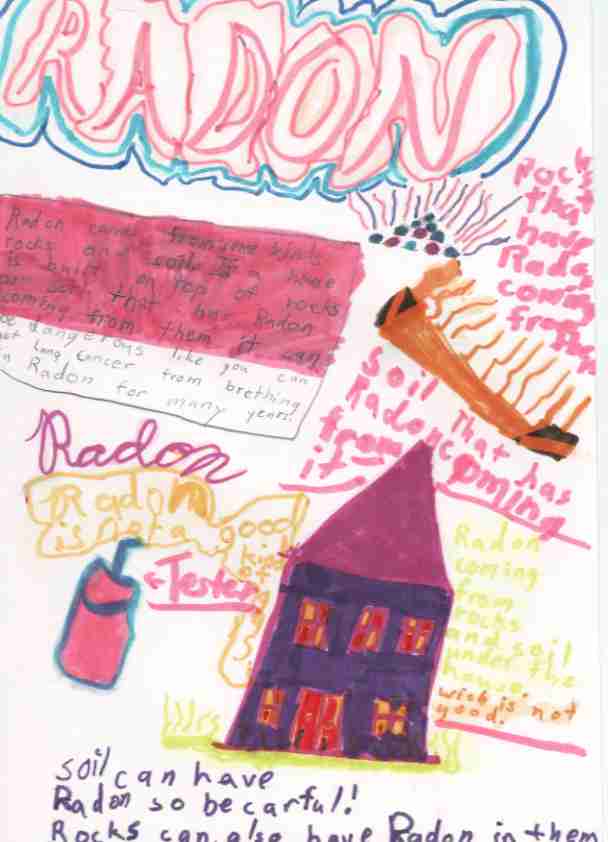 RADON
Rocks
that
have
Radon
coming
from
them
Radon comes from some kinds
rocks and soil If a house
is built on top of rocks
or soil that has Radon
coming from them it can
be dangerous like you can
get Lung Cancer from brething
in Radon for many years!
Soil That has
Radon coming
from
it
Radon
Radon
is not a good
kind
of
←Tester
Radon
coming
from
rocks
and soil
under the
house
wich is not
good!
Soil can have
Radon so be carful!
Rocks can also have Radon in them